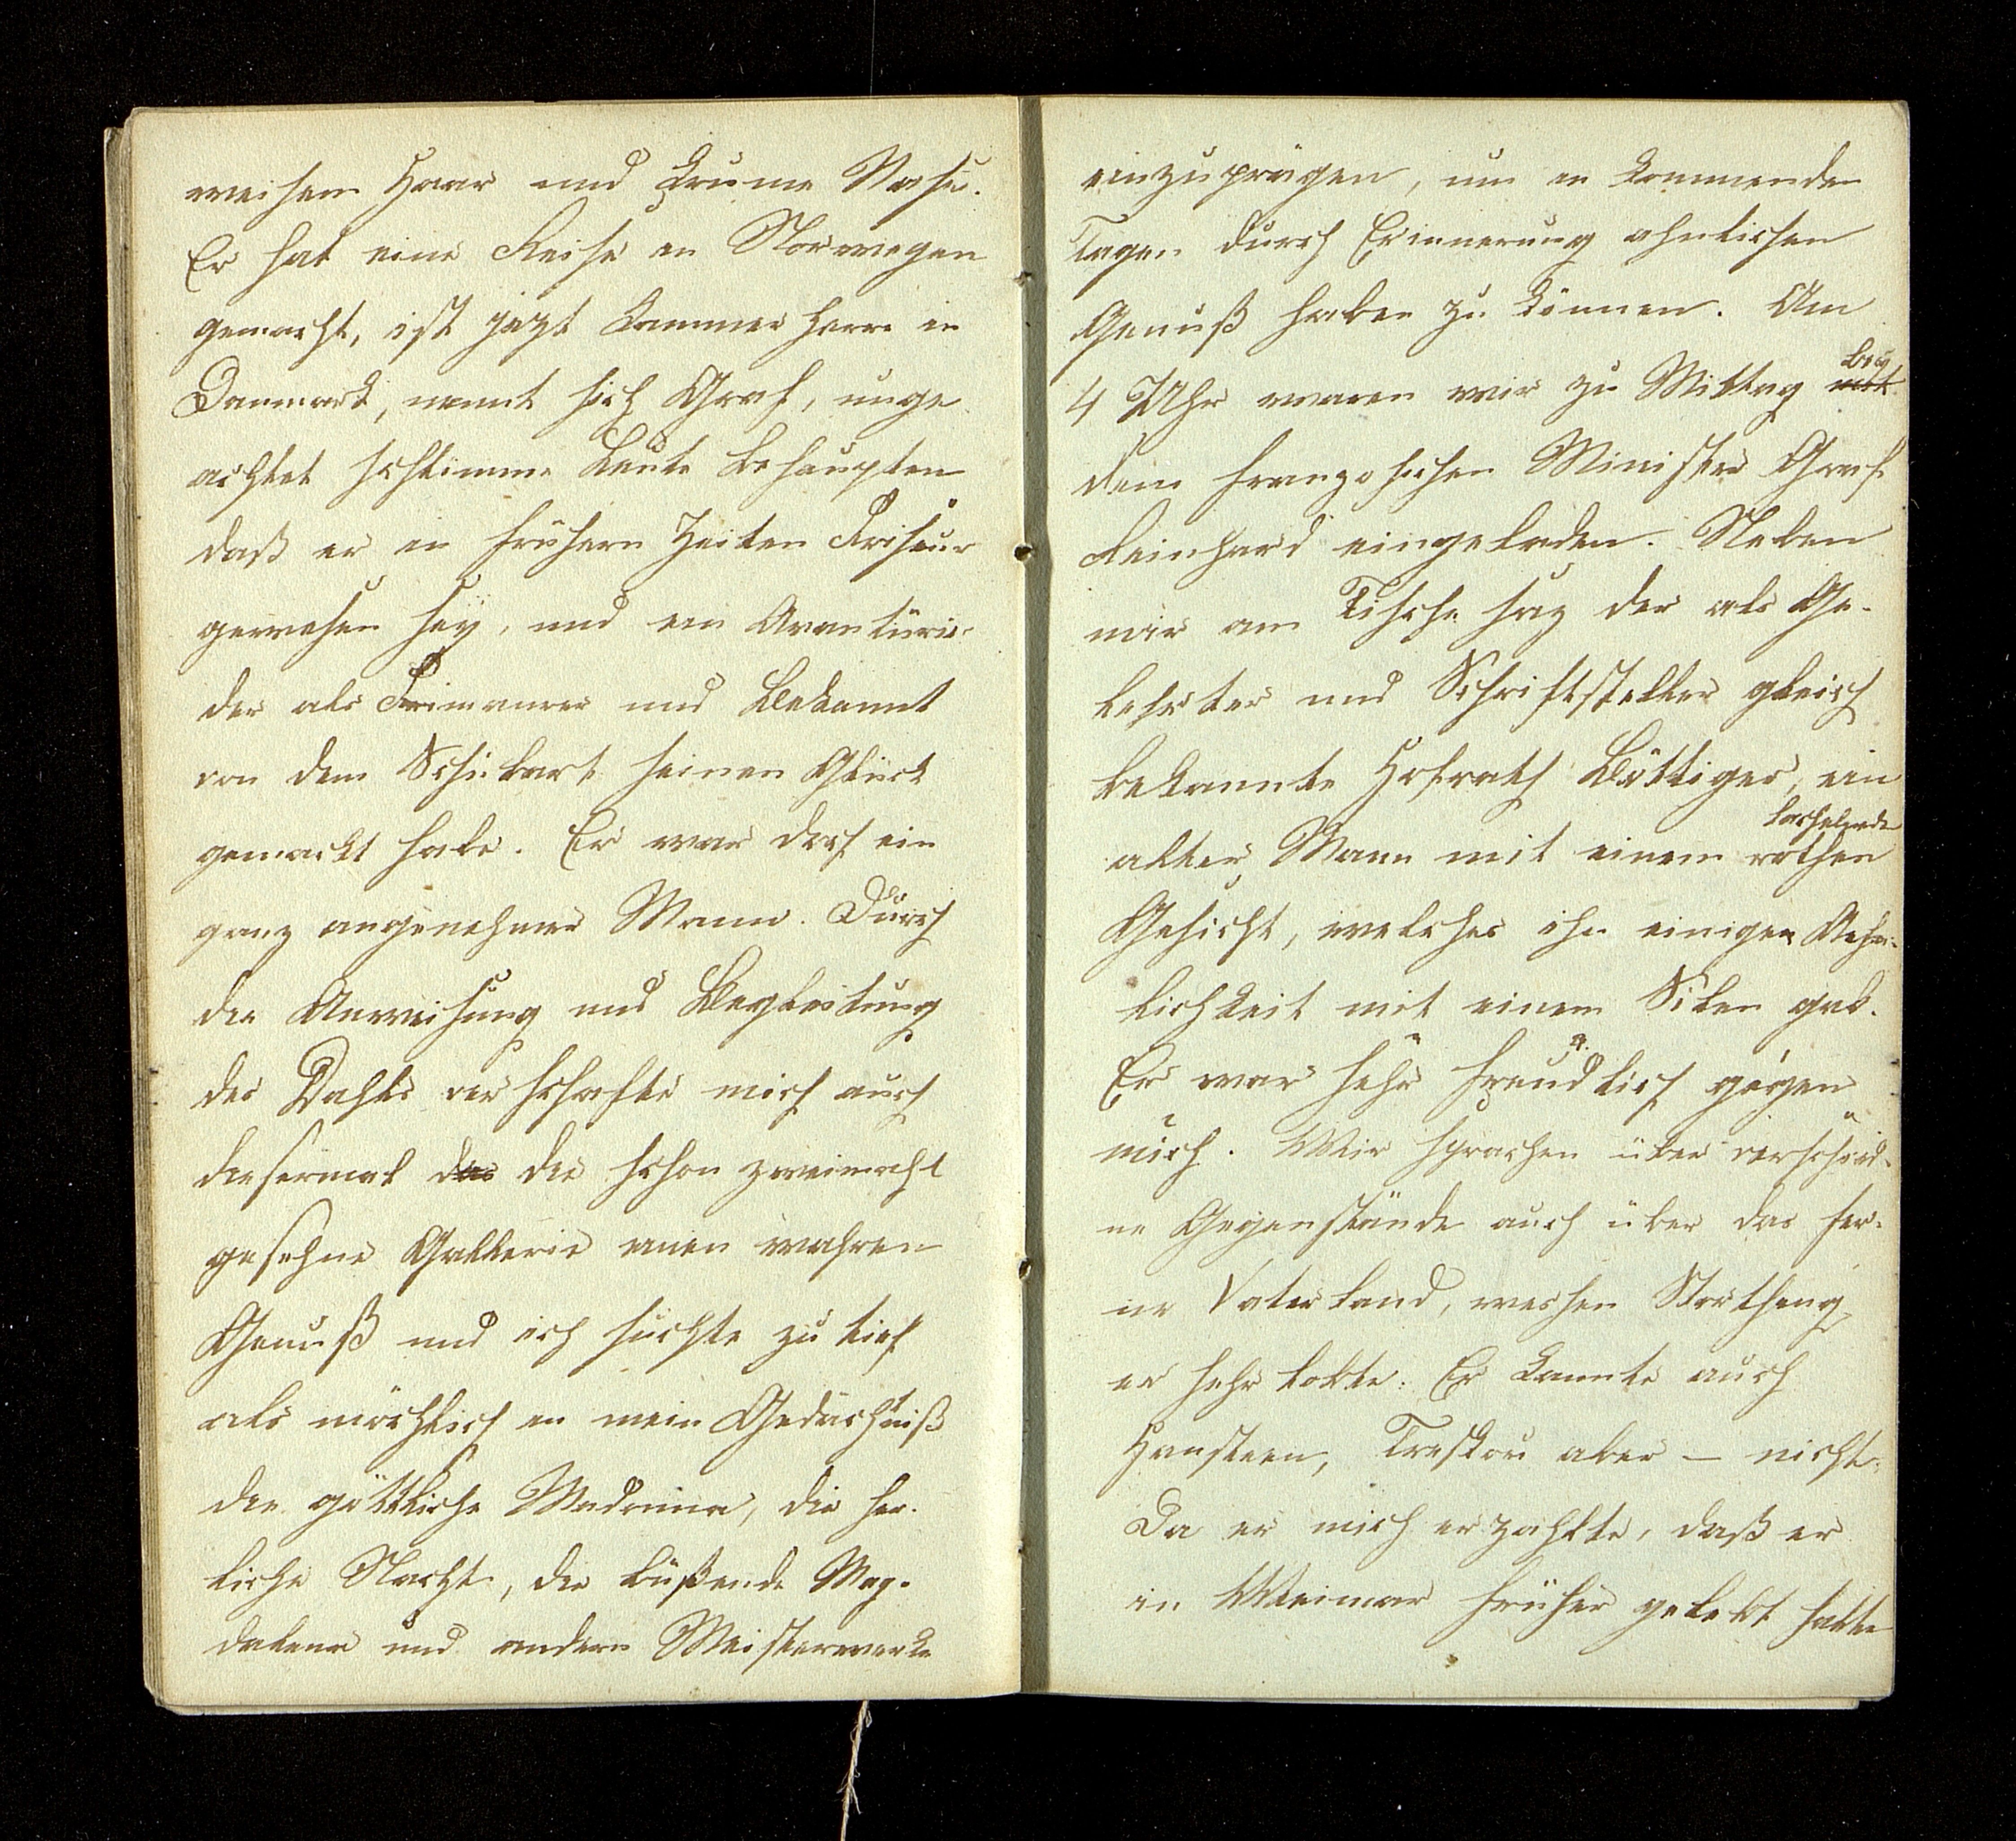 weisem Haar und krume Nase.
Er hat eine Reise in Norwegen
gemacht, ist jezt Kammer Herr in
Danmark, nennt sich Graf, unge
achtet schlimme Leute behaupten
daß er in frühern Zeiten Friseur
gewesen sey, und ein Avantürier
der als Frimaurer und Bekannt
von dem Schubart seinen Glück
gemackt habe. Er war doch ein
ganz angenehmer Mann. Durch
die Anweisung und Begleitung
des Dahls verschafte mich auch
diesermal das die schon zweimahl
gesehne Gallerie einen wahren
Genuß und ich suchte zu tief
als möchlich in mein Gedächtniß
die göttliche Madonna, die her-
liche Nacht, die büßende Mag-
dalena und andern Meisterwerke
einzuprägen, um in kommenden
Tagen durch Erinnerung ahnlichen
Genuß haben zu können. Um
4 Uhr waren wir zu Mittag mit bey
dem franzosischen Minister Graf
Reinhard eingeladen. Neben
mir am Tische saz der als Ge-
lehrter und Schriftsteller gleich
bekannte Hofrath Böttiger, ein
lachelnde
alter Mann mit einem rothen
Gesicht, welches ihn einigen Aehn-
lichkeit mit einem Silen gab.
Er war sehr freundlich gegen
mich. Wir sprachen über verschied-
ne Gegenstände auch über das fer-
ne Vaterland, weshen Storthing
er sehr lobte. Er kannte auch
Hansteen, Treskow aber – nicht.
Da er mich erzahlte, daß er
in Weimar früher gelebt hatte